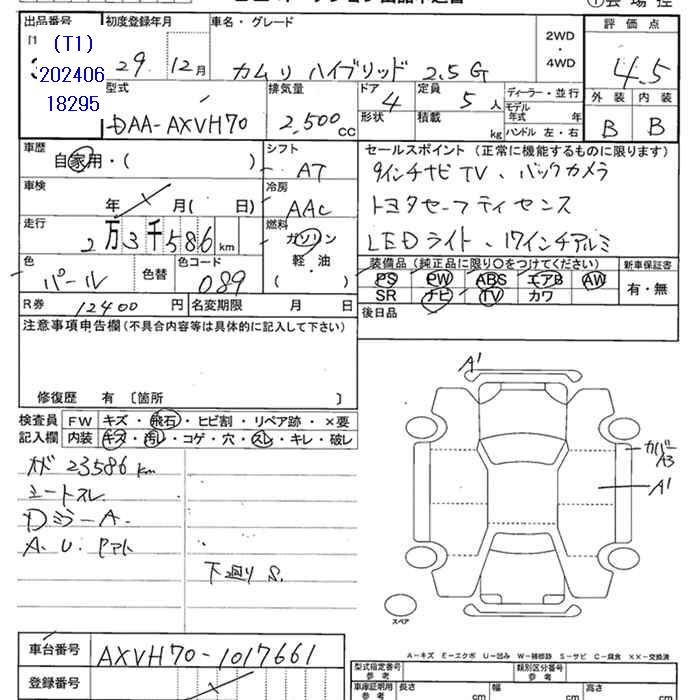 出品番号 初度登録年月 車名・グレード 評価点
(T1)
202406
18295
29年 12月 カムリ ハイブリッド 2.5G 2WD・4WD 4.5
型式 排気量 ドア 定員 ディーラー・並行 外装 内装
DAA-AXVH70 2,500cc 4 5人 モデル年式 年 B B
形状 積載 kg ハンドル 左・右
車歴 シフト セールスポイント (正常に機能するものに限ります)
自家用・( ) AT 9インチナビTV、バックカメラ
車検 冷房
年 月( 日) AAC トヨタセーフティセンス
走行 燃料
2万3千586km ガソリン LEDライト、17インチアルミ
軽・油
( )
色 色替 色コード 装備品(純正品に限り○をつけてください) 新車保証書
パール 089 PS PW ABS エアB AW 有・無
SR ナビ TV カワ
R券 12400円 名変期限 月 日 後日品
注意事項申告欄(不具合内容等は具体的に記入して下さい)
修復歴 有 〔箇所 〕
検査員 FW キズ・飛石・ヒビ割・リペア跡・×要
記入欄 内装 キズ・汚レ・コゲ・穴・スレ・キレ・破レ
A1
カバーA3
A1
23586km
シートスレ
DミラーA.
A.U.
下廻りS.
スペア
A-キズ E-エクボ U-凹み W-補修跡 S-サビ C-腐食 XX-交換済
車台番号 AXVH70-1017661
型式指定番号 参考 類別区分番号 参考
登録番号
車庫証明用 参考 長さ cm 幅 cm 高さ cm